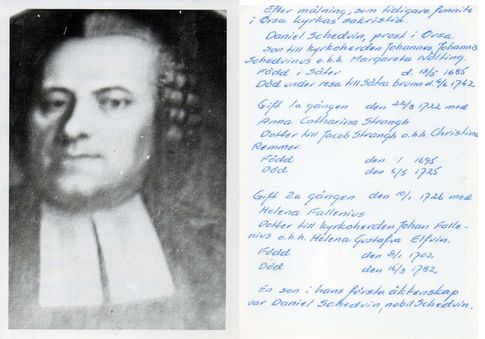 Efter målning, som tidigare funnits
i Orsa kyrkas sakristia.
Daniel Schedvin, prost i Orsa.
Son till kyrkoherden Johannes Johannis
Schedvinus o.h.h. Margareta Nolting.
Född i Säter d. 18/5 1685
Död under resa till Sätra brunn d. 4/6 1742
Gift 1a gången den 22/3 1722 med
Anna Catharina Strangh
Dotter till Jacob Strangh o.h.h. Christina
Remmer.
Född den 1 1695
Död den 6/5 1725
Gift 2a gången den 10/1 1726 med
Helena Fallenius
Dotter till kyrkoherden Johan Falle-
nius o.h.h. Helena Gustafva Elfvin.
Född den 8/1 1702
Död den 16/3 1782
En son i hans första äktenskap
var Daniel Schedvin, nobil Schedvin.